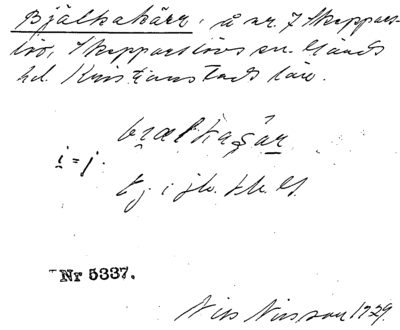 Bjälkakärr, å nr 7 Skeppars-
löv, Skepparslövs sn. Gärds
hd. Kristianstads län.
i = j.
Ej i jb.
Nr 5337.
Nils Nilsson 1929.